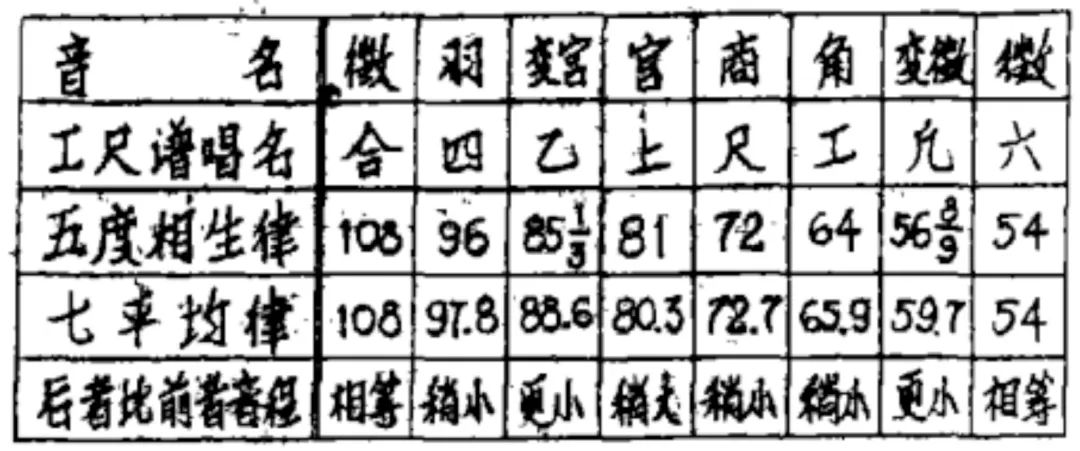 音名 徵 羽 变宫 宫 商 角 变徵 徵
工尺谱唱名 合 四 乙 上 尺 工 凡 六
五度相生律 108 96 85⅓ 81 72 64 56 8/9 54
七平均律 108 97.8 88.6 80.3 72.7 65.9 59.7 54
后者比前者音程 相等 稍小 更小 稍大 稍小 稍小 更小 相等